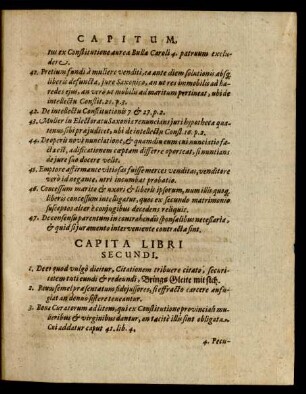 CAPITUM.
tus ex Constitutione aurea Bulla Caroli 4. patruum exclu-
deret.
41. Pretium fundi à muliere venditi, ea ante diem solutionis absq;
liberis defuncta, jure Saxonico, an ut res immobilis ad hæ-
redes ejus, an verò ut mobilis ad maritum pertineat, ubi de
intellectu Constit. 21. p. 3.
42. De intellectu Constitutionis 7 & 27. p. 2.
43. Mulier in Electoratu Saxonis renuncians juri hypothecæ qua-
tenus sibi præjudicet, ubi de intellectu Const. 16. p. 2.
44. De operis novi nunciatione, & quamdiu cum ei nunciatio fa-
cta est, ædificationem cœptam differre oporteat, si nuncians
de jure suo docere velit.
45. Emptore affirmante vitiosas fuisse merces venditas, venditore
verò id negante, utri incumbat probatio.
46. Concessum marito & uxori & liberis ipsorum, num illis quoq;
liberis concessum intelligatur, quos ex secundo matrimonio
susceptos alter è conjugibus decedens reliquit.
47. De consensu parentum in contrahendis sponsalibus necessario,
& quid si juramento interveniente contracta sint.
CAPITA LIBRI
SECUNDI.
1. De er quod vulgò dicitur, Citationem tribuere citato, securi-
tatem tuti eundi & redeundi, Brings Gleite mit sich.
2. Bonus simel præsentatum fidejussores, si effracto carcere aufu-
giat an denuò sistere teneantur.
3. Bona Curatorum ad litem, qui ex Constitutione provinciali mu-
lieribus & virginibus dantur, an tacitè illis sint obligata.
Cui addatur caput 41. lib. 4.
4. Pecu-